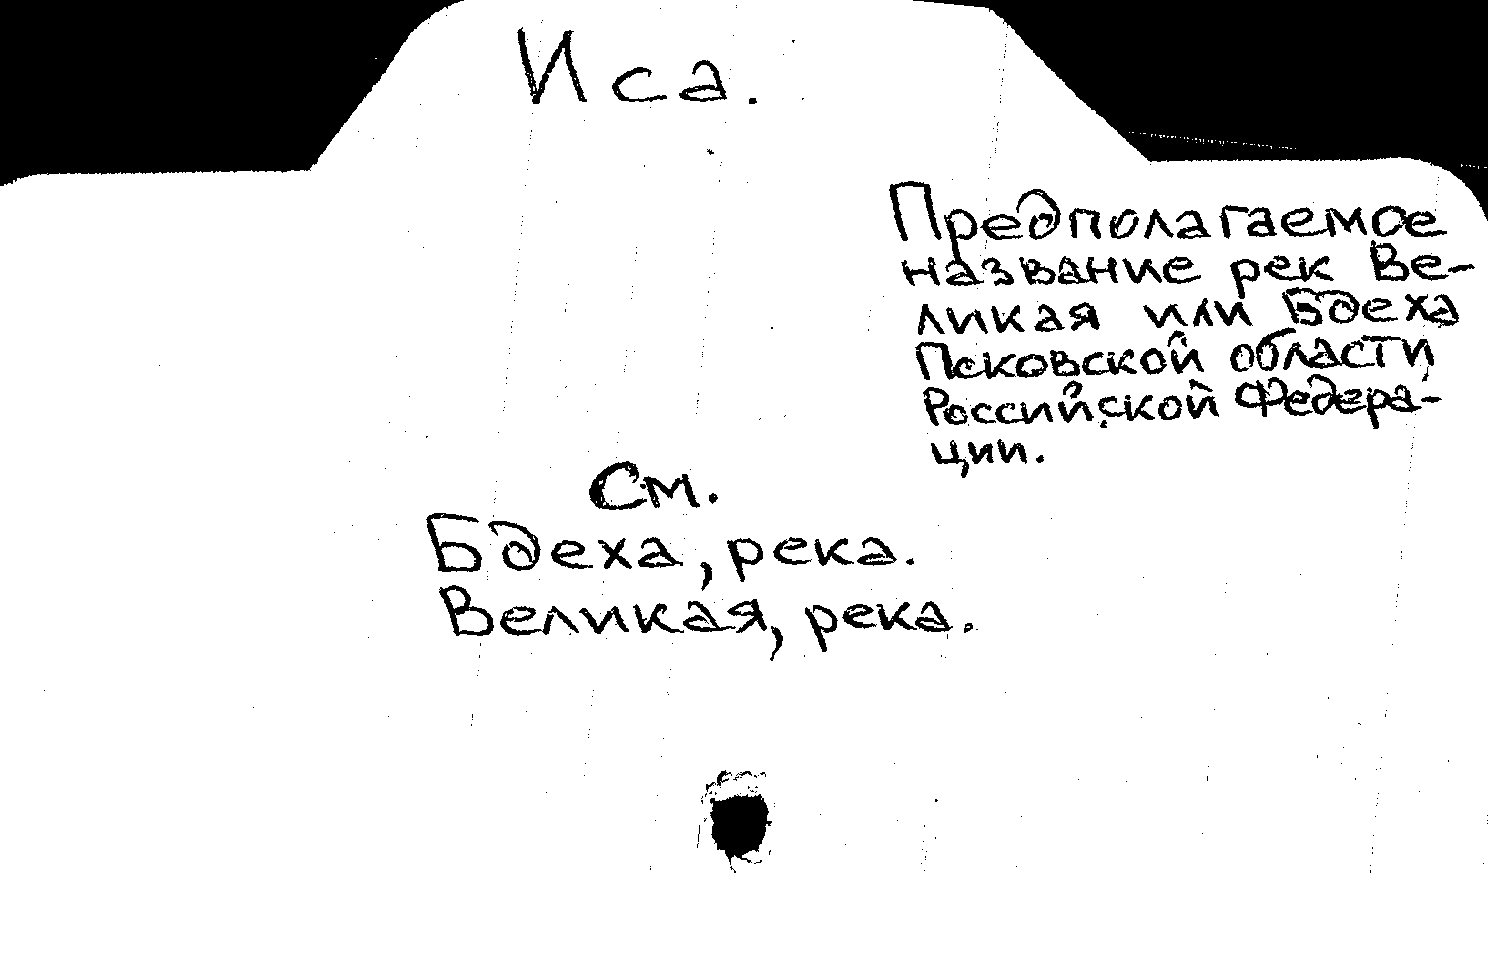 Иса.
Предполагаемое
название рек Ве-
ликая или Бдеха
Псковской области
Российской Федера-
ции.
См.
Бдеха, река.
Великая, река.